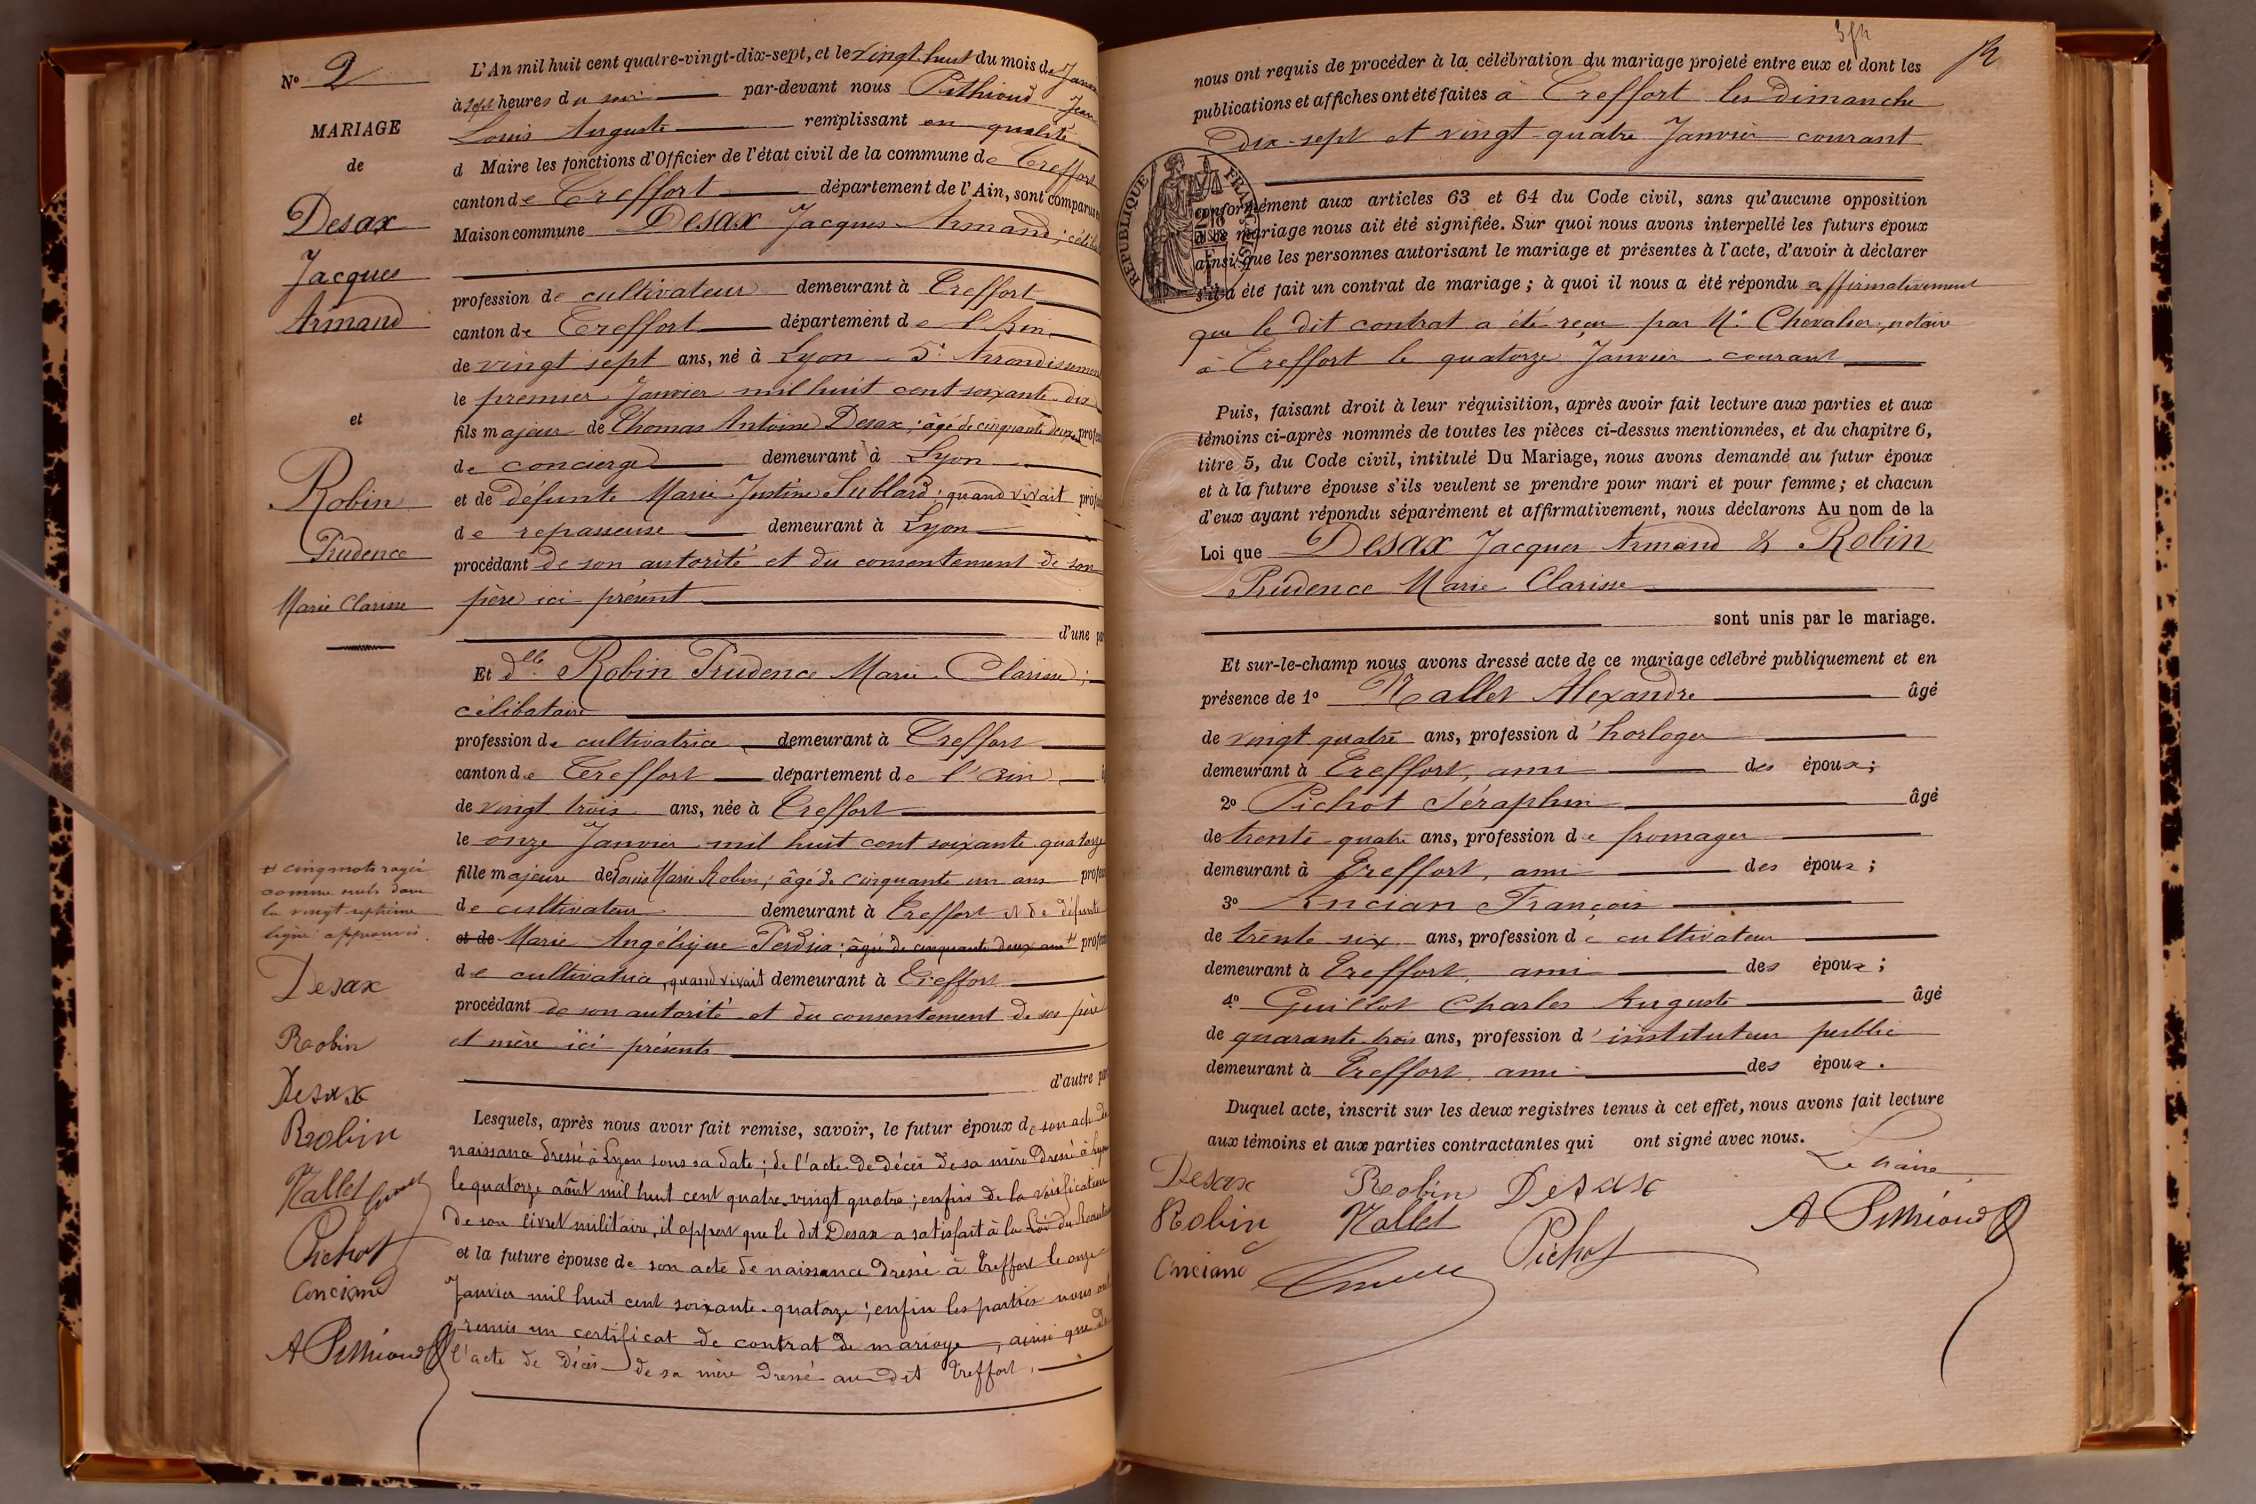 N° 2
MARIAGE
de
Desax
Jacques
Armand
et
Robin
Prudence
Marie Clarisse
# cinq mots rayés
comme nuls dans
la vingt septième
ligne approuvés.
Desax
Robin
Desax
Robin
Nallet
Pichot
Anciand
L'An mil huit cent quatre-vingt-dix-sept, et le vingt-huit du mois de Janvier
à sept heures du soir par-devant nous Pethioud Jean
Louis Auguste remplissant en qualité
d Maire les fonctions d'Officier de l'état civil de la commune de Treffort
canton de Treffort département de l'Ain, sont comparus
Maison commune Desax Jacques Armand ; céliba
profession de cultivateur demeurant à Treffort
canton de Treffort département de l'Ain
de vingt sept ans, né à Lyon 5e Arrondissement
le premier Janvier mil huit cent soixante-dix
fils majeur de Thomas Antoine Desax ; âgé de cinquante deux ans profes
de concierge demeurant à Lyon
et de défunte Marie Justine Sublard ; quand vivait profes
de repasseuse demeurant à Lyon
procédant de son autorité et du consentement de son
père ici présent
d'une par
Et dlle Robin Prudence Marie Clarisse ;
célibataire
profession de cultivatrice demeurant à Treffort
canton de Treffort département de l'Ain
de vingt trois ans, née à Treffort
le onze Janvier mil huit cent soixante quatorze
fille majeure de Louis Marie Robin ; âgé de cinquante un ans profes
de cultivateur demeurant à Treffort et de défunte
et de Marie Angélique Perdrix ; âgée de cinquante deux ans # profes
de cultivatrice, quand vivait demeurant à Treffort
procédant de son autorité et du consentement de ses père
et mère ici présents
d'autre par
Lesquels, après nous avoir fait remise, savoir, le futur époux de son acte de
naissance dressé à Lyon sous sa date ; de l'acte de décès de sa mère dressé à Lyon
le quatorze août mil huit cent quatre-vingt quatre ; enfin de la vérification
de son livret militaire, il appert que le dit Desax a satisfait à la Loi du Recrute
et la future épouse de son acte de naissance dressé à Treffort le onze
Janvier mil huit cent soixante-quatorze ; enfin les parties nous ont
remis un certificat de contrat de mariage, ainsi que de
l'acte de décès de sa mère dressé au dit Treffort.
nous ont requis de procéder à la célébration du mariage projeté entre eux et dont les
publications et affiches ont été faites à Treffort les dimanche
dix-sept et vingt-quatre Janvier courant
RÉPUBLIQUE FRANÇAISE
conformément aux articles 63 et 64 du Code civil, sans qu'aucune opposition
à ce mariage nous ait été signifiée. Sur quoi nous avons interpellé les futurs époux
ainsi que les personnes autorisant le mariage et présentes à l'acte, d'avoir à déclarer
s'il a été fait un contrat de mariage ; à quoi il nous a été répondu affirmativement
que le dit contrat a été reçu par Me Chevalier, notaire
à Treffort le quatorze Janvier courant
Puis, faisant droit à leur réquisition, après avoir fait lecture aux parties et aux
témoins ci-après nommés de toutes les pièces ci-dessus mentionnées, et du chapitre 6,
titre 5, du Code civil, intitulé Du Mariage, nous avons demandé au futur époux
et à la future épouse s'ils veulent se prendre pour mari et pour femme ; et chacun
d'eux ayant répondu séparément et affirmativement, nous déclarons Au nom de la
Loi que Desax Jacques Armand & Robin
Prudence Marie Clarisse
sont unis par le mariage.
Et sur-le-champ nous avons dressé acte de ce mariage célébré publiquement et en
présence de 1° Nallet Alexandre âgé
de vingt quatre ans, profession d'horloger
demeurant à Treffort, ami des époux ;
2° Pichot Séraphin âgé
de trente-quatre ans, profession de fromager
demeurant à Treffort, ami des époux ;
3° Ancian François
de trente six ans, profession de cultivateur
demeurant à Treffort, ami des époux ;
4° Guillot Charles Auguste âgé
de quarante trois ans, profession d'instituteur public
demeurant à Treffort, ami des époux.
Duquel acte, inscrit sur les deux registres tenus à cet effet, nous avons fait lecture
aux témoins et aux parties contractantes qui ont signé avec nous.
Le Maire
Desax Robin Desax
Robin Nallet Pichot A Pethioud
Anciand